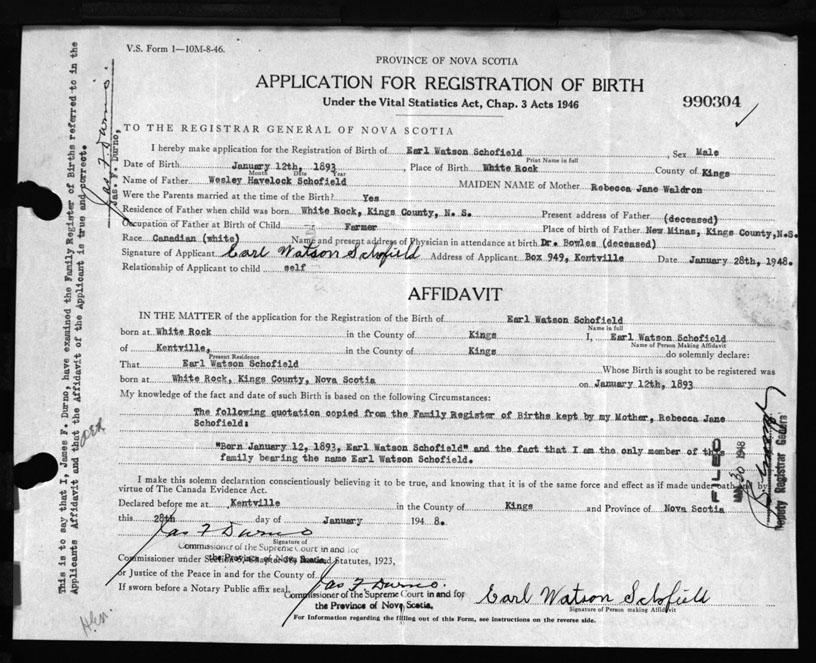 V.S. Form 1—10M-8-46.
PROVINCE OF NOVA SCOTIA
APPLICATION FOR REGISTRATION OF BIRTH
Under the Vital Statistics Act, Chap. 3 Acts 1946
990304
TO THE REGISTRAR GENERAL OF NOVA SCOTIA
I hereby make application for the Registration of Birth of Earl Watson Schofield, Sex Male
Print Name in full
Date of Birth January 12th, 1893, Place of Birth White Rock County of Kings
Month Date Year
Name of Father Wesley Havelock Schofield MAIDEN NAME of Mother Rebecca Jane Waldron
Were the Parents married at the time of Birth? Yes
Residence of Father when child was born White Rock, Kings County, N. S. Present address of Father (deceased)
Occupation of Father at Birth of Child Farmer Place of birth of Father New Minas, Kings County, N.S.
Race Canadian (white) Name and present address of Physician in attendance at birth Dr. Bowles (deceased)
Signature of Applicant Earl Watson Schofield Address of Applicant Box 949, Kentville Date January 28th, 1948.
Relationship of Applicant to child self
AFFIDAVIT
IN THE MATTER of the application for the Registration of the Birth of Earl Watson Schofield
Name in full
born at White Rock in the County of Kings I, Earl Watson Schofield
Name of Person Making Affidavit
of Kentville, in the County of Kings do solemnly declare:
Present Residence
That Earl Watson Schofield Whose Birth is sought to be registered was
born at White Rock, Kings County, Nova Scotia on January 12th, 1893
My knowledge of the fact and date of such Birth is based on the following Circumstances:
The following quotation copied from the Family Register of Births kept by my Mother, Rebecca Jane
Schofield:
"Born January 12, 1893, Earl Watson Schofield" and the fact that I am the only member of this
family bearing the name Earl Watson Schofield.
I make this solemn declaration conscientiously believing it to be true, and knowing that it is of the same force and effect as if made under oath by
virtue of The Canada Evidence Act.
Declared before me at Kentville in the County of Kings and Province of Nova Scotia
this 28th day of January 1948.
Jas F Durno
Signature of
Commissioner of the Supreme Court in and for
the Province of Nova Scotia.
Commissioner under Section Chapter Statutes, 1923,
or Justice of the Peace in and for the County of
Jas F Durno.
If sworn before a Notary Public affix seal.
Commissioner of the Supreme Court in and for
the Province of Nova Scotia.
Earl Watson Schofield
Signature of Person making Affidavit
For Information regarding the filling out of this Form, see instructions on the reverse side.
This is to say that I, James F. Durno, have examined the Family Register of Births referred to in the
Applicants Affidavit and that the Affidavit of the Applicant is true and correct.
Jas F Durno.
Jas. F. Durno,
FILED
1948
Deputy Registrar General